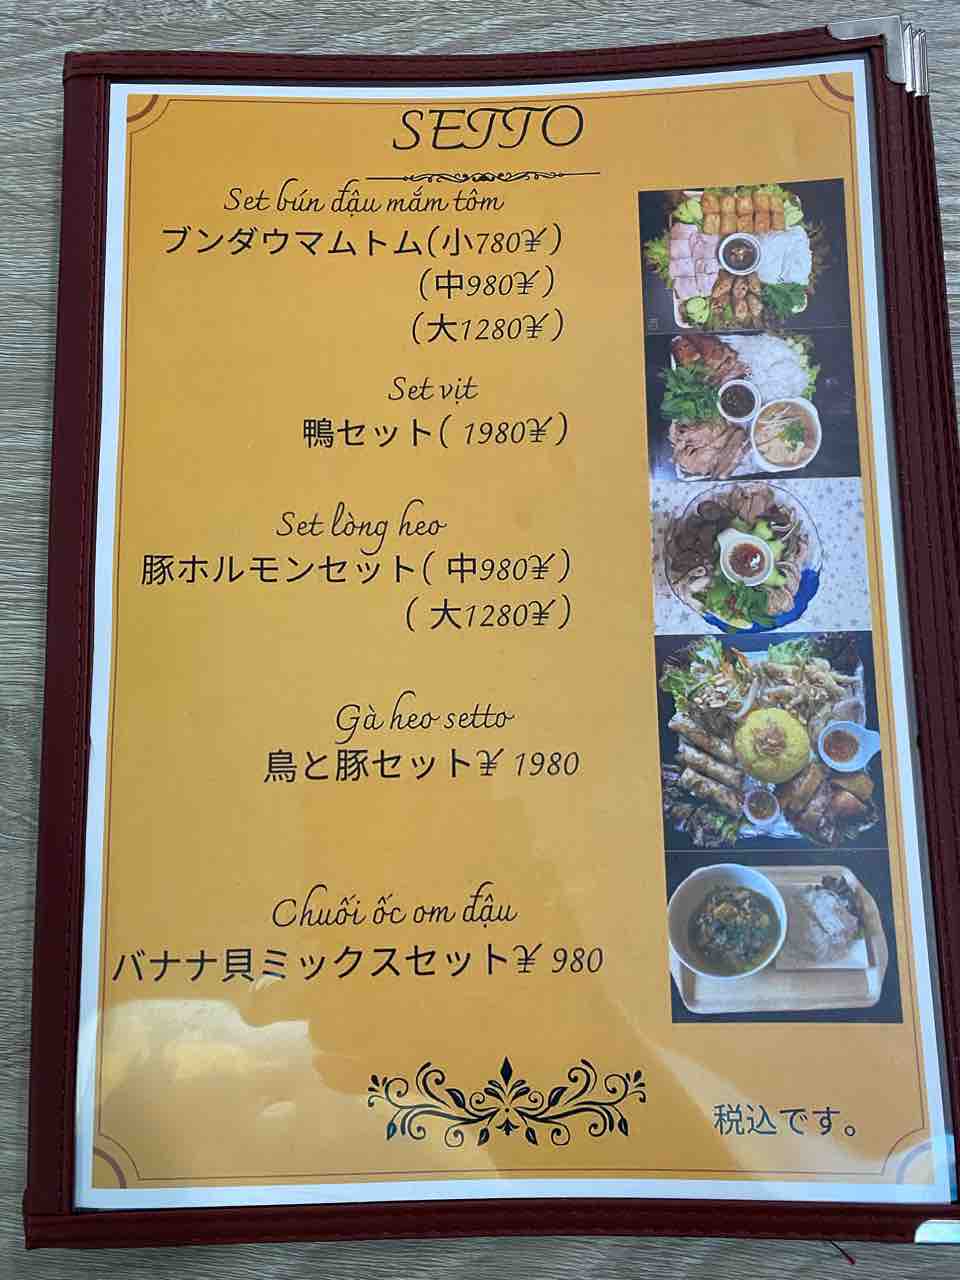 SETTO
Set bún đậu mắm tôm
ブンダウマムトム(小780¥)
(中980¥)
(大1280¥)
Set vịt
鴨セット( 1980¥)
Set lòng heo
豚ホルモンセット( 中980¥)
( 大1280¥)
Gà heo setto
鳥と豚セット¥ 1980
Chuối ốc om đậu
バナナ貝ミックスセット¥ 980
税込です。